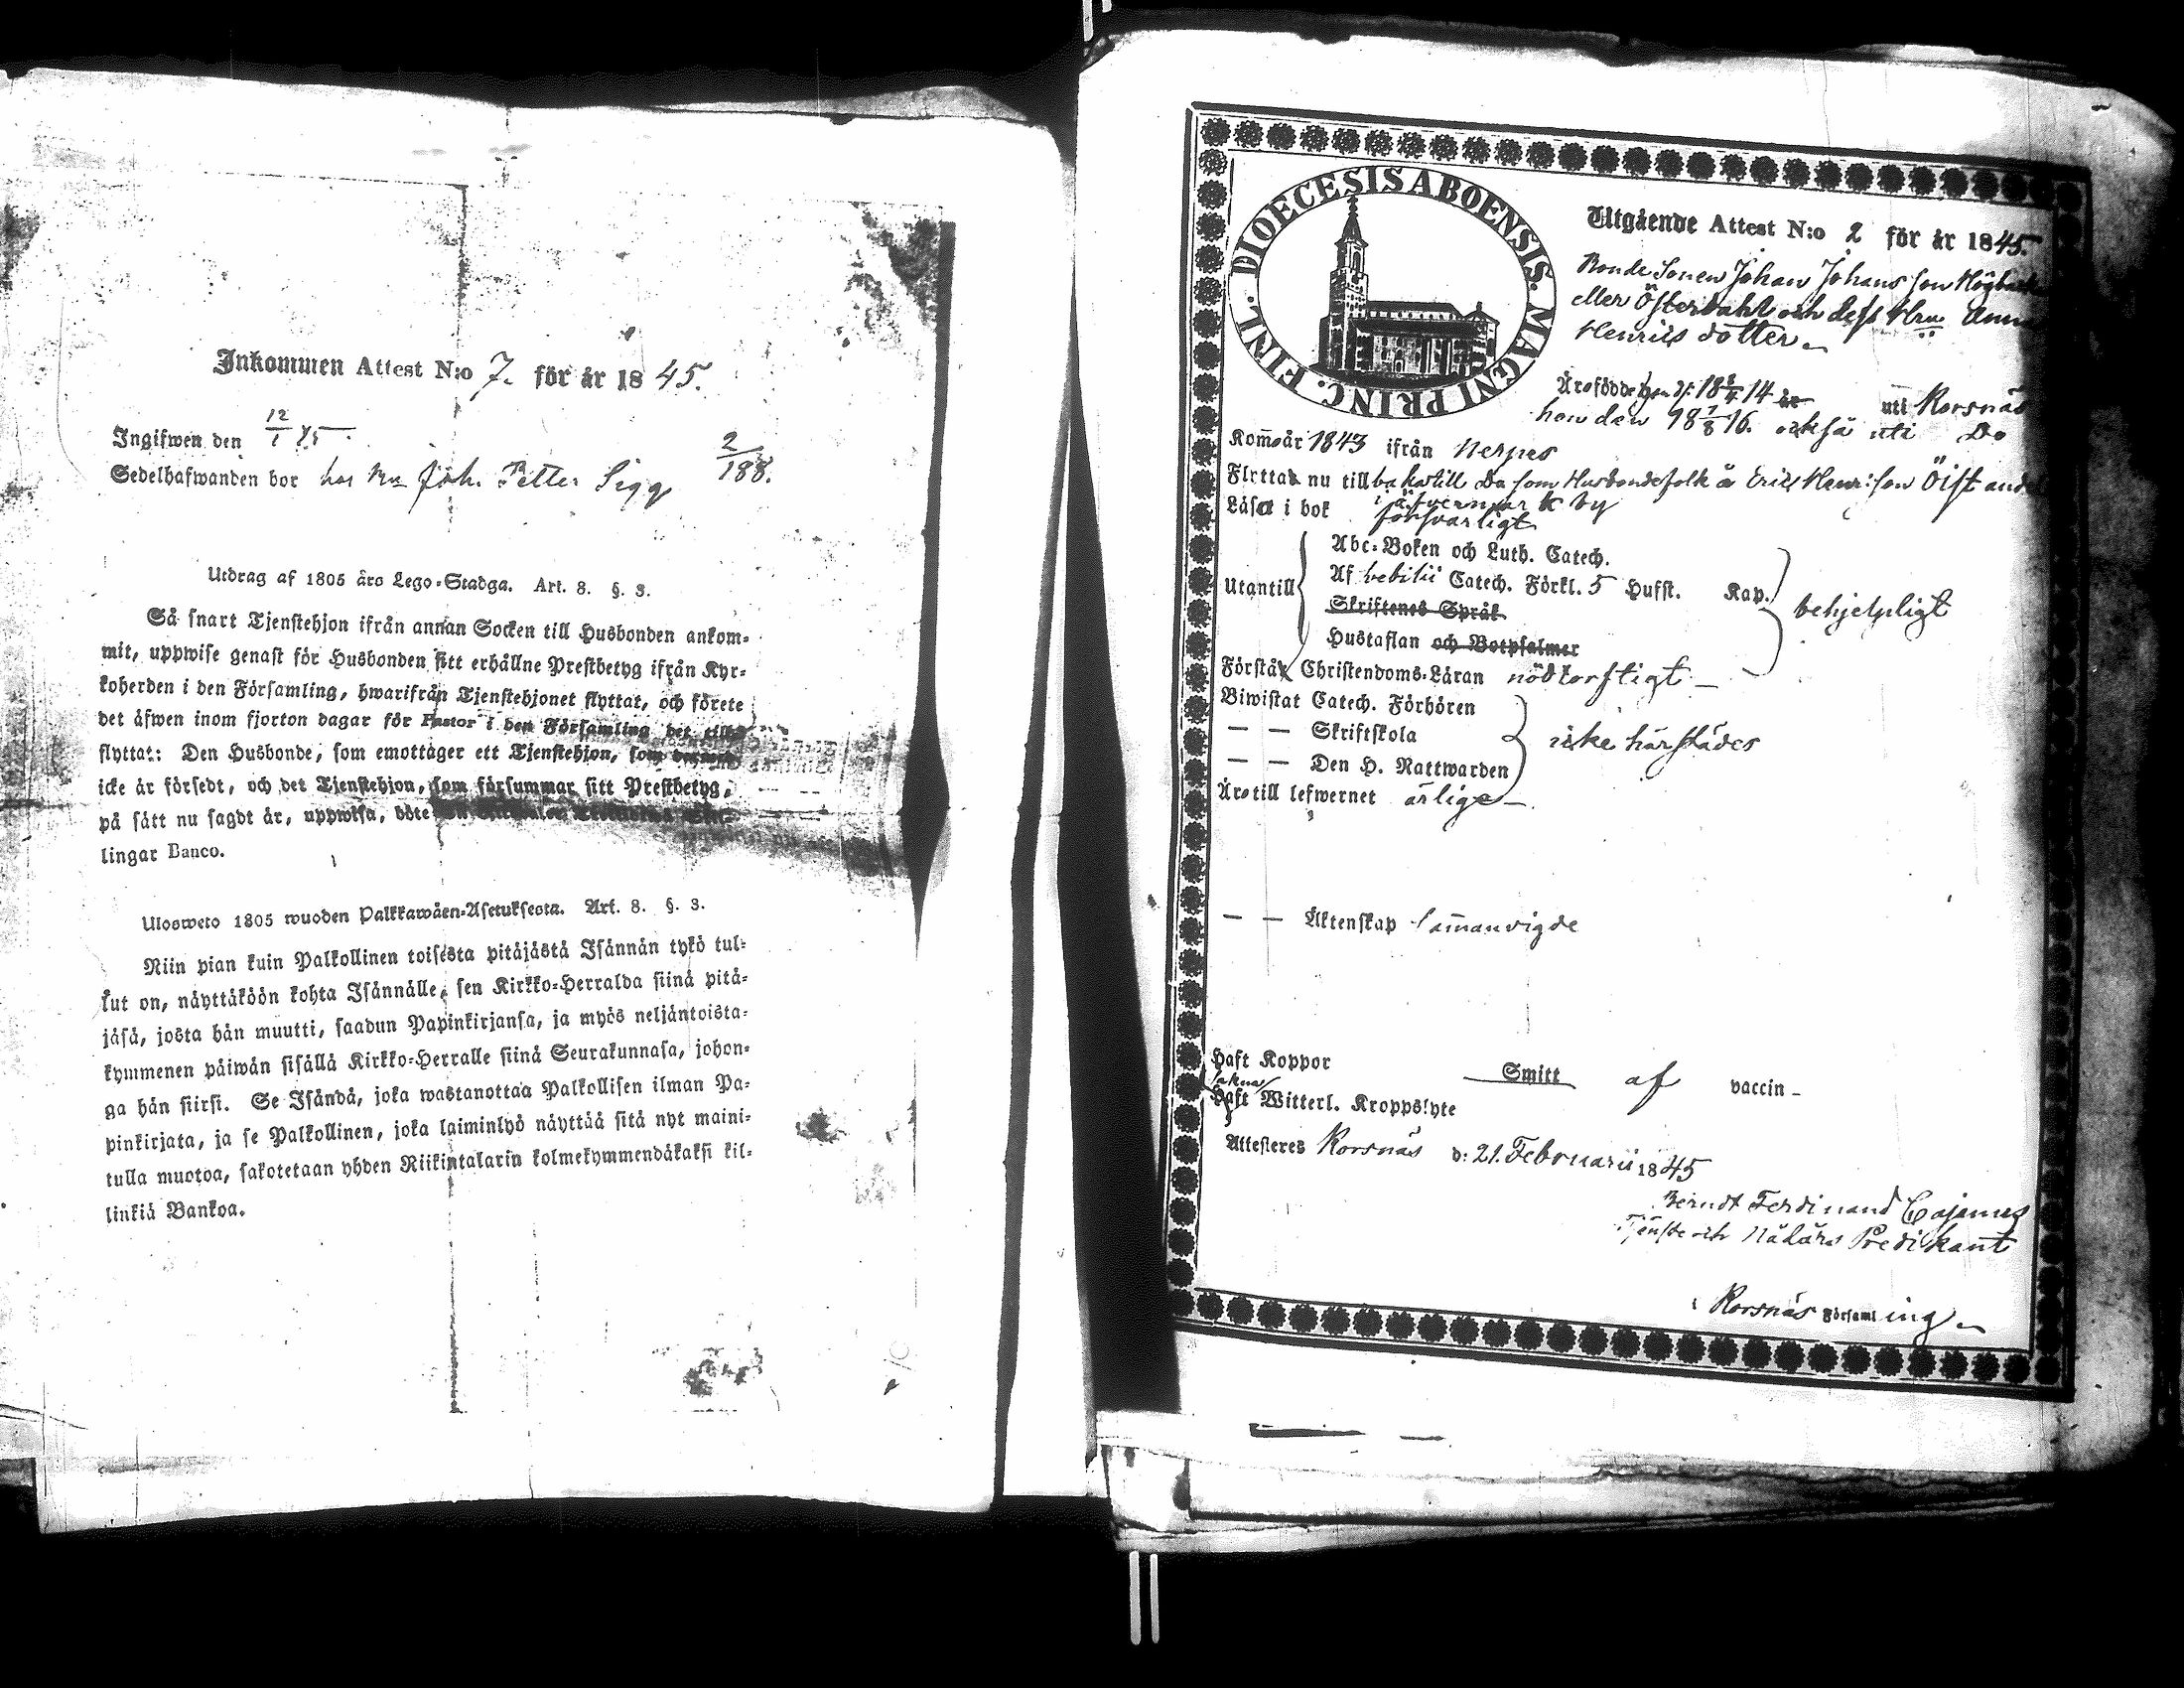 Inkommen Attest N:o 7. för år 1845.
Ingifwen den 12/1 45.
Sedelhafwanden bor hos Joh. Petter Sigg 2/188.
Utdrag af 1805 års Lego-Stadga. Art. 8. §. 3.
Så snart Tjenstehjon ifrån annan Socken till Husbonden ankom-
mit, uppwise genast för Husbonden sitt erhållne Prestbetyg ifrån Kyr-
koherden i den Församling, hwarifrån Tjenstehjonet flyttat, och förete
det äfwen inom fjorton dagar för Pastor i den Församling det till-
flyttat: Den Husbonde, som emottager ett Tjenstehjon, som
icke är försedt, och det Tjenstehjon, som försummar sitt Prestbetyg,
på sätt nu sagdt är, uppwisa, böte
lingar Banco.
Ulosweto 1805 wuoden Palkkawäen-Asetuksesta. Art. 8. §. 3.
Niin pian kuin Palkollinen toisesta pitäjästä Isännän tykö tul-
lut on, näyttäköön kohta Isännälle, sen Kirkko-Herralda siinä pitä-
jäsä, josta hän muutti, saadun Papinkirjansa, ja myös neljäntoista-
kymmenen päiwän sisällä Kirkko-Herralle siinä Seurakunnasa, johon-
ga hän siirsi. Se Isändä, joka wastanottaa Palkollisen ilman Pa-
pinkirjata, ja se Palkollinen, joka laiminlyö näyttää sitä nyt maini-
tulla muotoa, sakotetaan yhden Riikintalarin kolmekymmendäkaksi kil-
linkiä Bankoa.
DIOECESIS ABOENSIS. MAGNI PRINC. FINL.
Utgående Attest N:o 2 för år 1845.
Bonde Sonen Johan Johansson Högback
eller Österdahl och dess Hru Anna
Henriks dotter.
Äro födde han d: 18 3/4 14 år uti Korsnäs
hon den 18 7/8 16. också uti Do
Kom̄o år 1843 ifrån Nerpes
Flyttat nu till baka till Do som Husbondefolk å Erik Henr:son Öist andel
i Öfvermark by
Läsa i bok försvarligt
Utantill Abc-Boken och Luth. Catech.
Af bebilii Catech. Förkl. 5 Hufst. Kap. behjelpligt
Skriftenes Språk
Hustaflan och Botpsalmer
Förstå Christendoms-Läran nödtorftigt
Biwistat Catech. Förhören
— — Skriftskola icke härstädes
— — Den H. Nattwarden
Äro till lefwernet ärlige
— — Äktenskap Sam̄anvigde
Haft Koppor Smitt af vaccin
sakna
Haft Witterl. Kroppslyte
Attesteres Korsnäs d: 21. Februarii 1845
Berndt Ferdinand Cajanus
Tjenste och Nådårs Predikant
i Korsnäs Församling